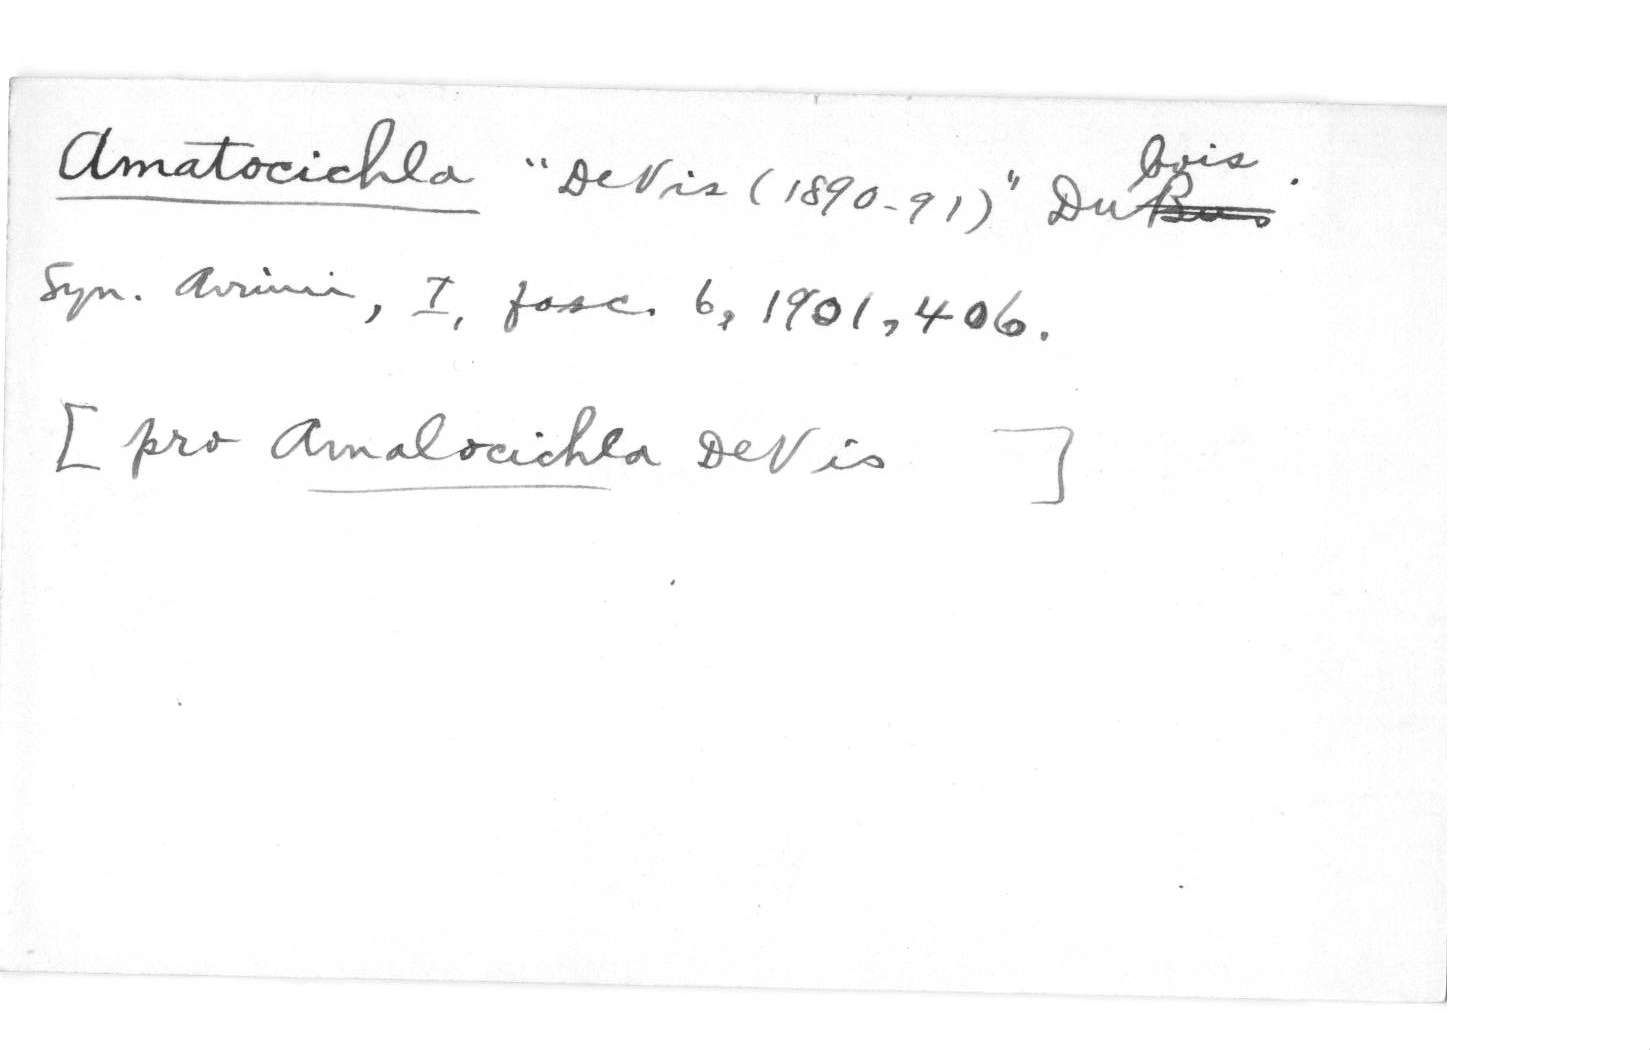 Amatocichla "DeVis (1890-91)" Dubois.
Syn. Avium, I, fasc. 6, 1901, 406.
[pro Amalocichla DeVis ]